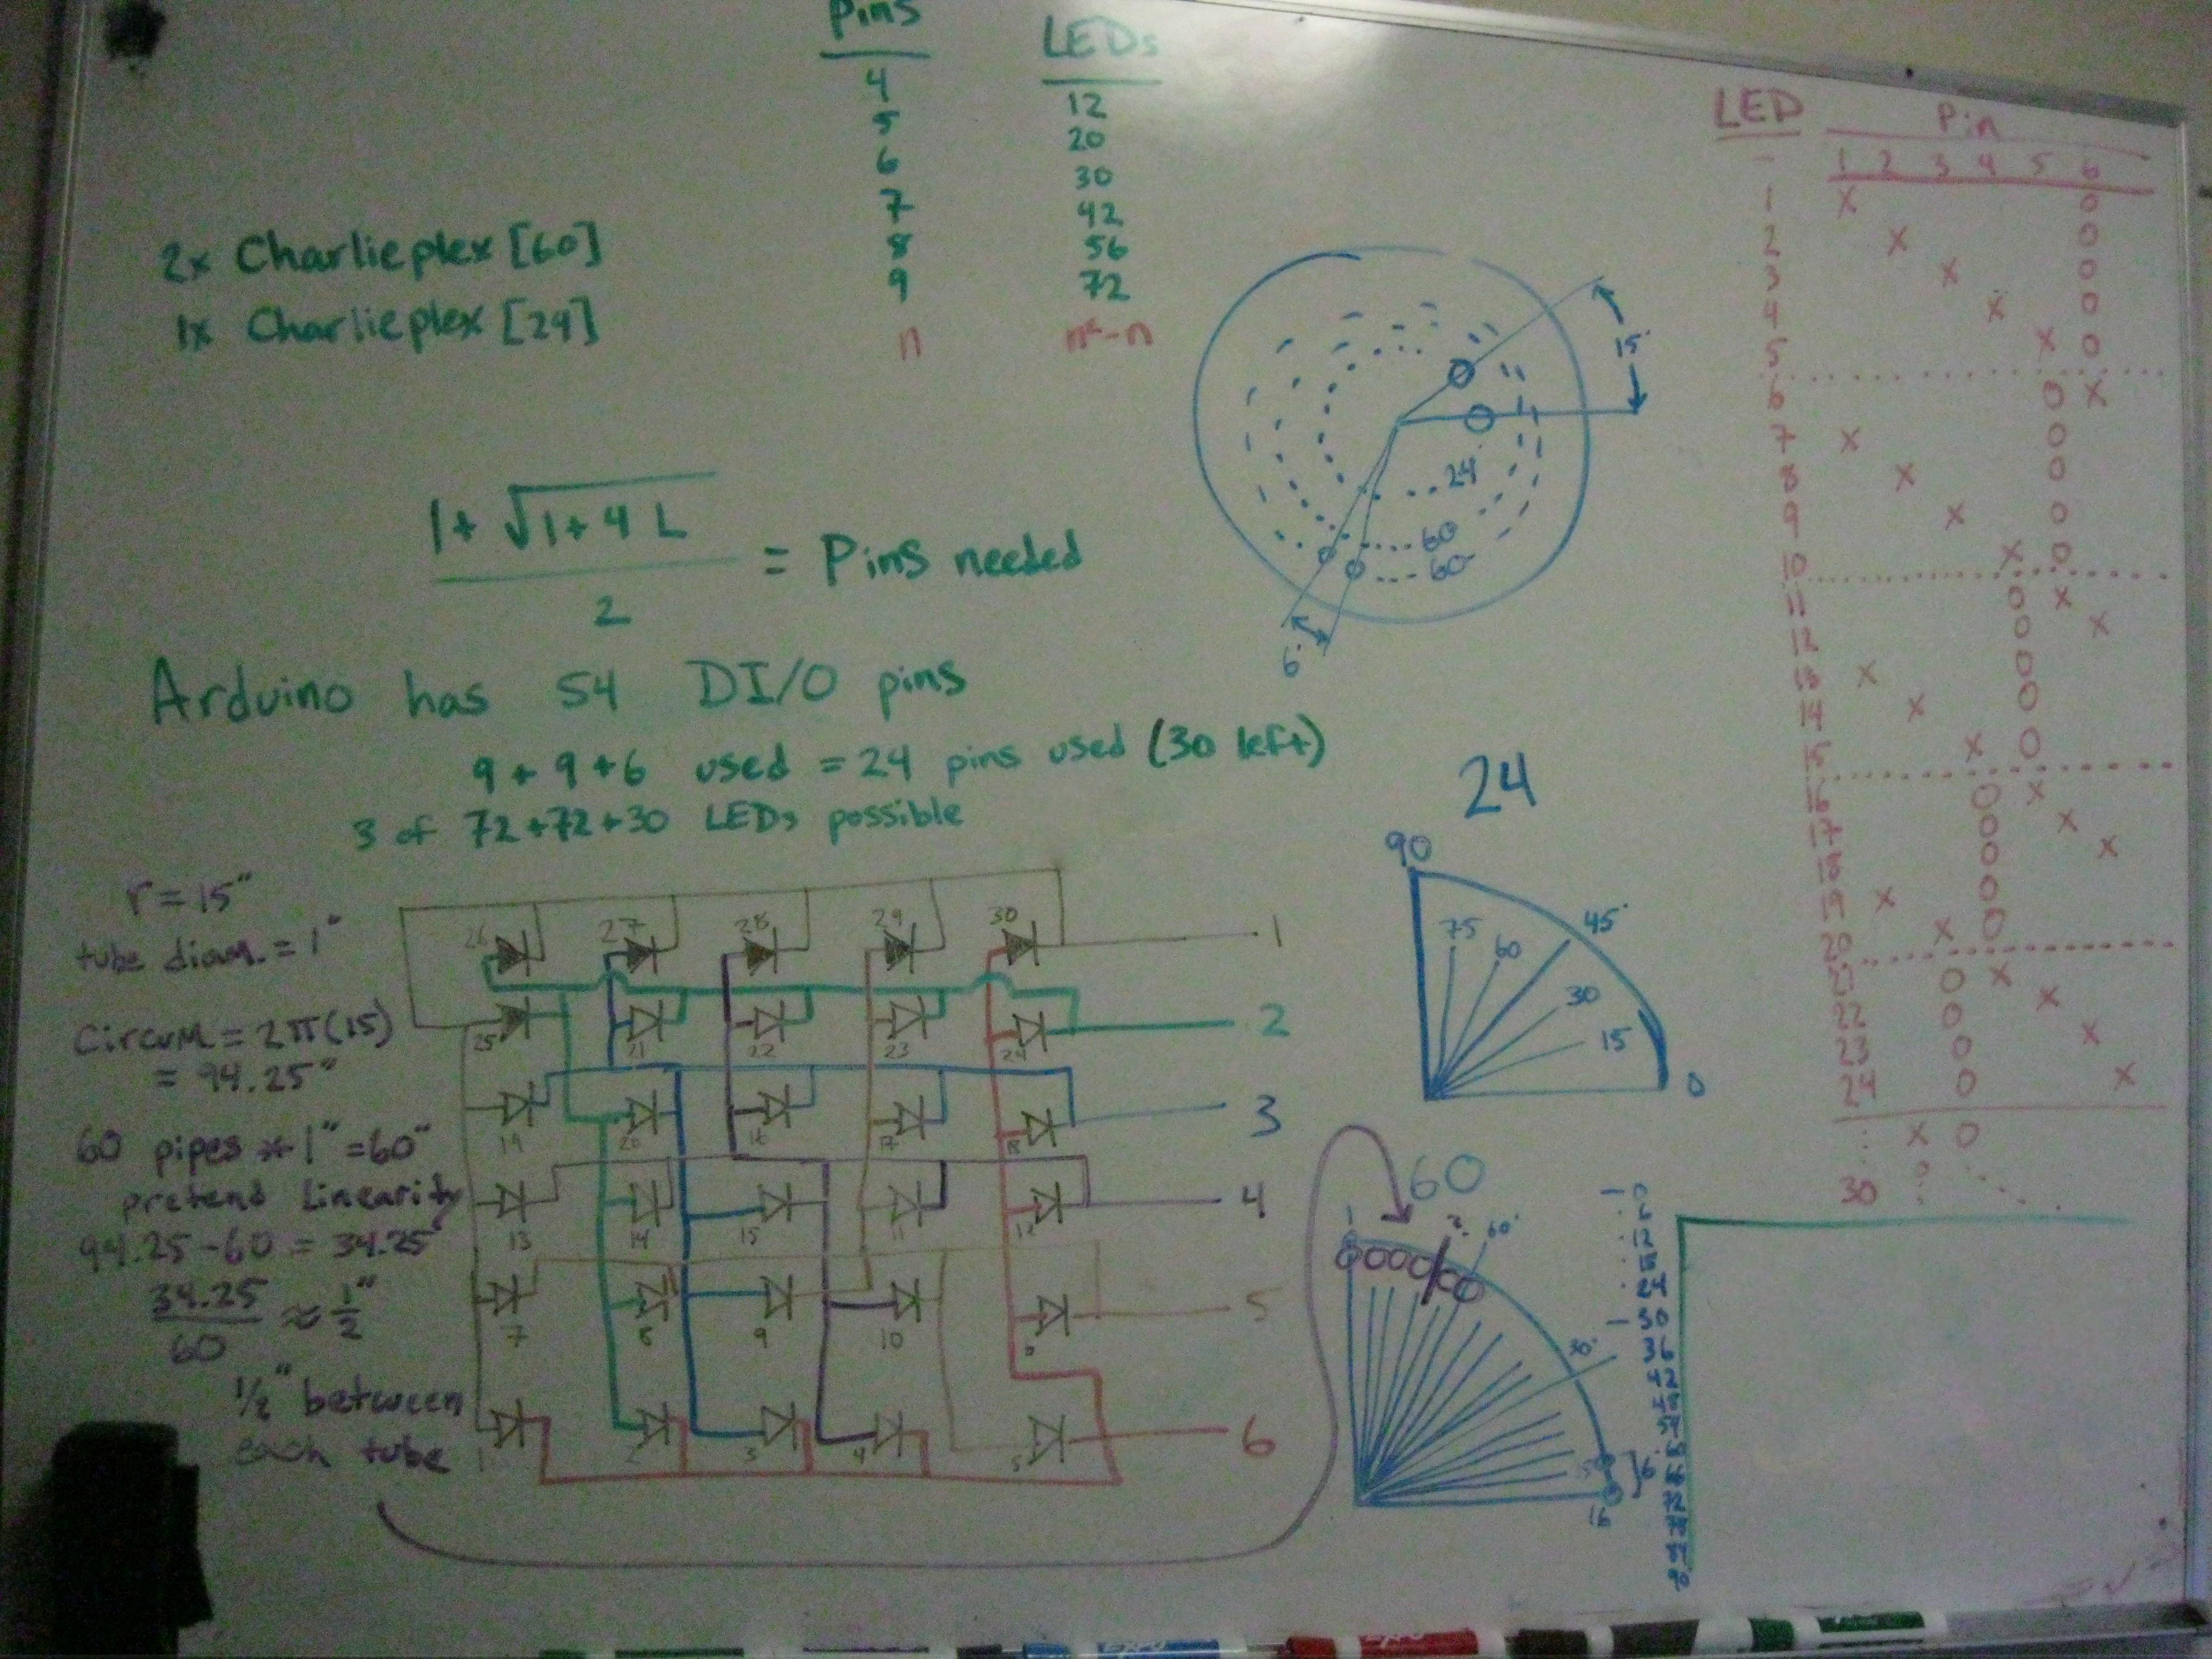 Pins LEDs
4 12
5 20
6 30
7 42
8 56
9 72
n n²-n
2x Charlieplex [60]
1x Charlieplex [24]
1+ √1+4 L
2
= Pins needed
Arduino has 54 DI/O pins
9+9+6 used = 24 pins used (30 left)
3 of 72+72+30 LEDs possible
r=15"
tube diam. = 1"
Circum = 2π(15)
= 94.25"
60 pipes * 1" = 60"
pretend linearity
94.25-60 = 34.25"
34.25
60
≈ 1/2"
1/2" between
each tube
26 27 28 29 30 1
25 21 22 23 24 2
19 20 16 17 18 3
13 14 15 11 12 4
7 8 9 10 6 5
1 2 3 4 5 6
15°
24
60
60
6°
24
90
75 60 45°
30
15
0
60
1 ? 60°
30°
6°
16
0
6
12
18
24
30
36
42
48
54
60
66
72
78
84
90
LED Pin
1 2 3 4 5 6
1 X O
2 X O
3 X O
4 X O
5 X O
6 O X
7 X O
8 X O
9 X O
10 X O
11 O X
12 O X
13 X O
14 X O
15 X O
16 O X
17 O X
18 O X
19 X O
20 X O
21 O X
22 O X
23 O X
24 O X
X O
30 ?
EXPO
EXPO